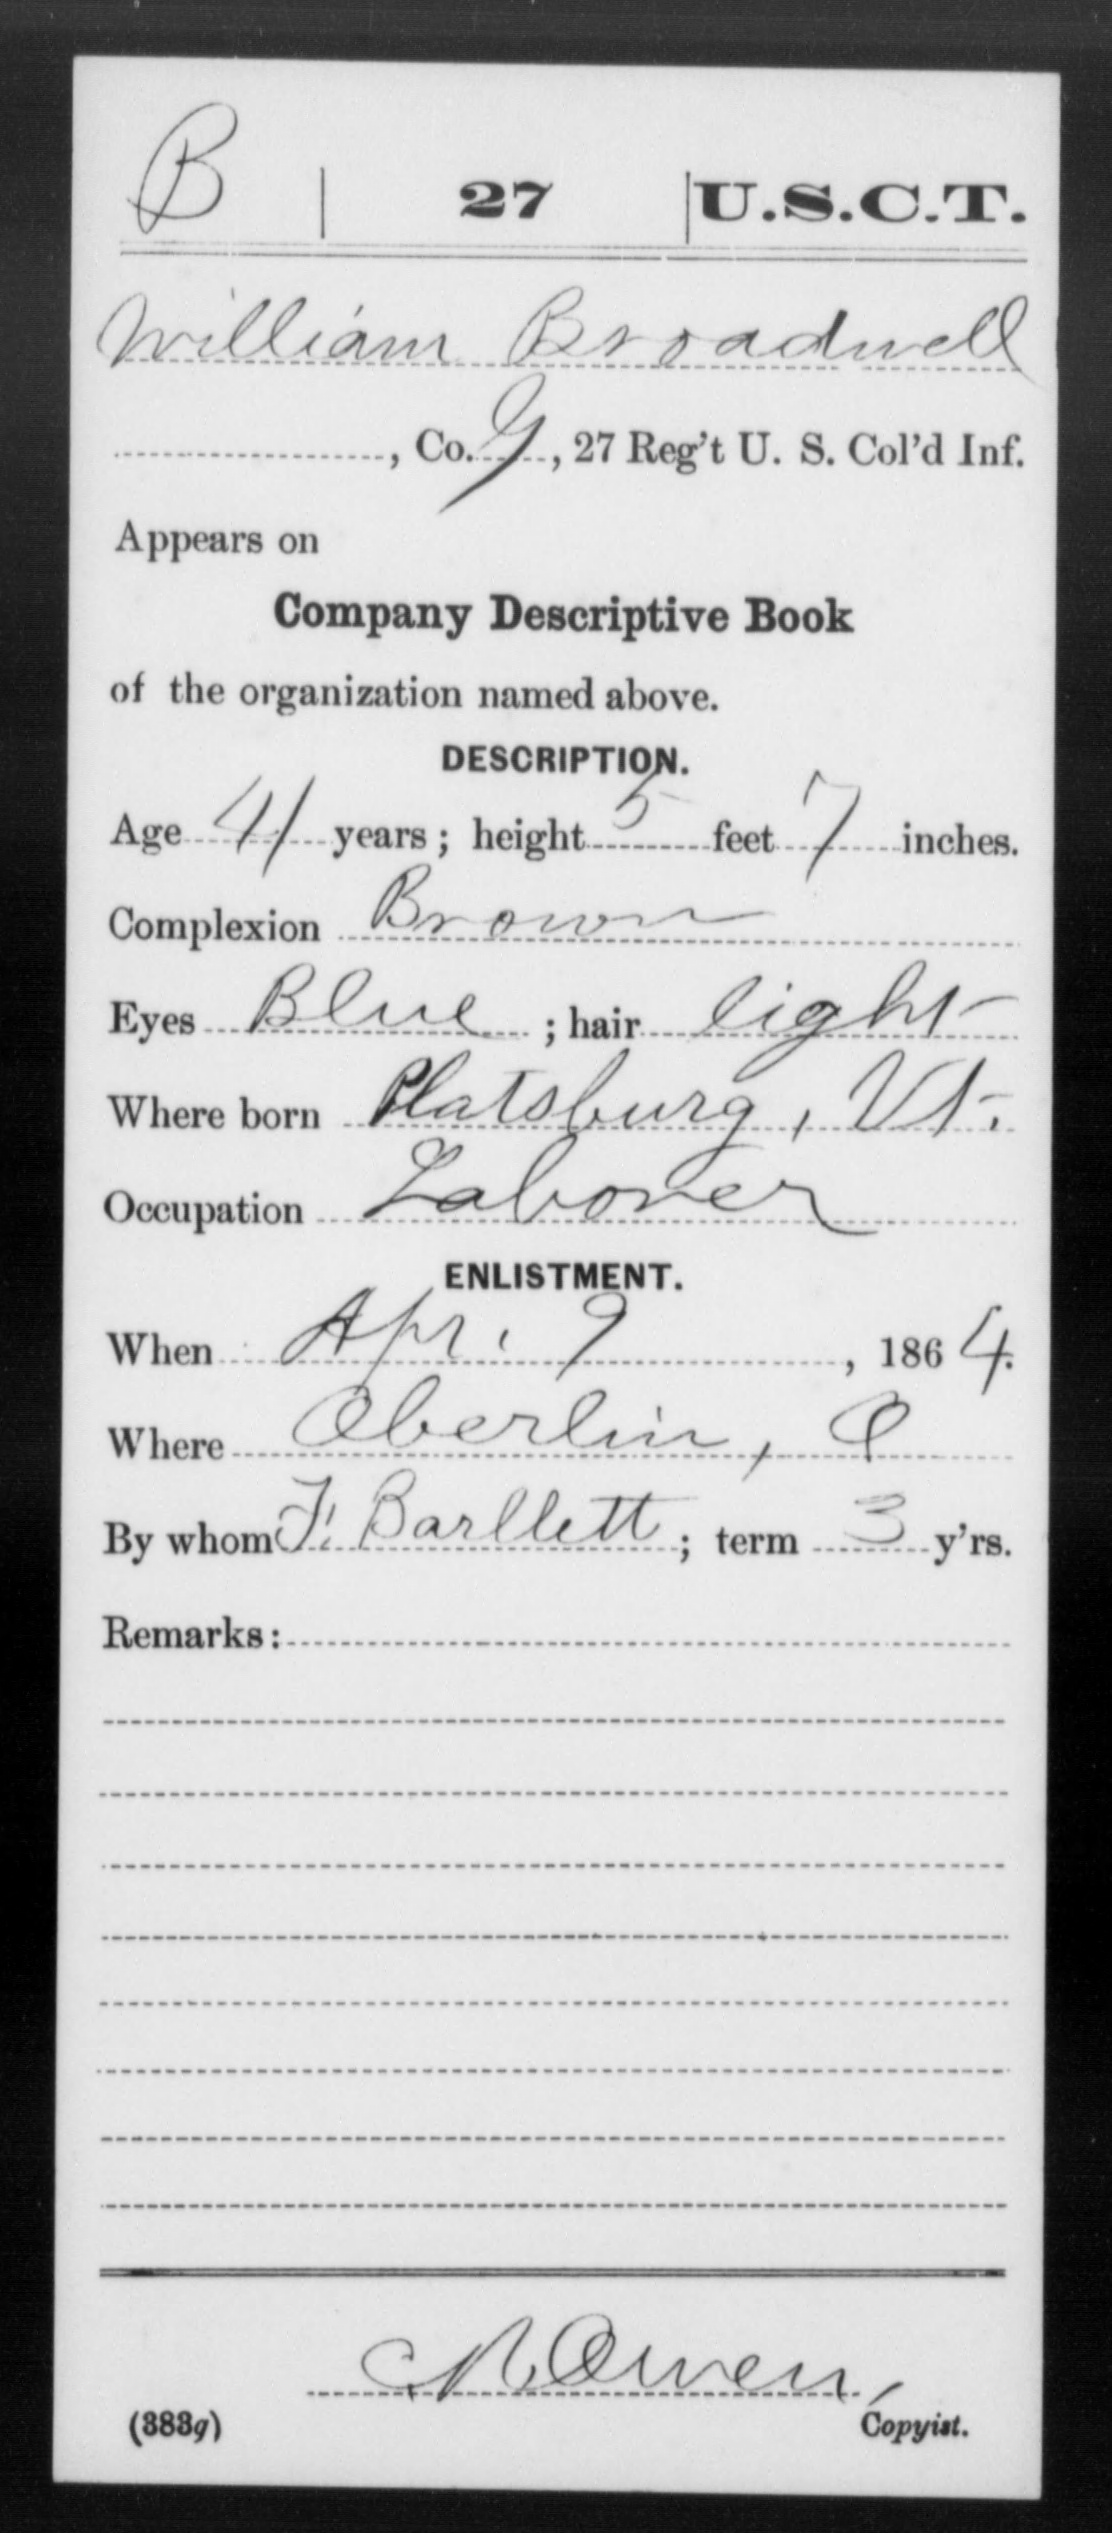 B | 27 | U.S.C.T.
William Broadwell
, Co. G, 27 Reg't U. S. Col'd Inf.
Appears on
Company Descriptive Book
of the organization named above.
DESCRIPTION.
Age 41 years; height 5 feet 7 inches.
Complexion Brown
Eyes Blue; hair light
Where born Platsburg, Vt.
Occupation Laborer
ENLISTMENT.
When Apr. 9, 1864.
Where Oberlin, O
By whom F. Barllett; term 3 y'rs.
Remarks:
Owen
(383g) Copyist.